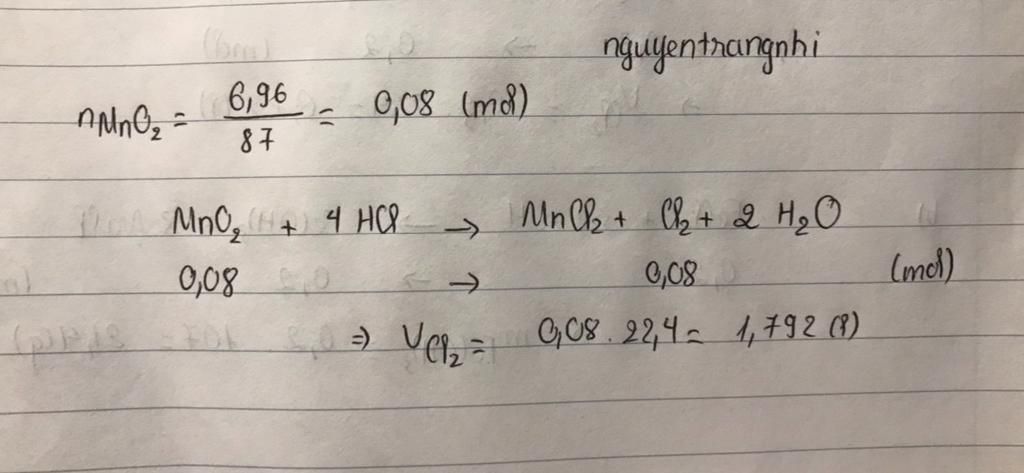 nguyentrangnhi
nMnO₂ = 6,96 / 87 = 0,08 (mol)
MnO₂ + 4 HCl → MnCl₂ + Cl₂ + 2 H₂O
0,08 → 0,08 (mol)
⇒ VCl₂ = 0,08 . 22,4 = 1,792 (l)